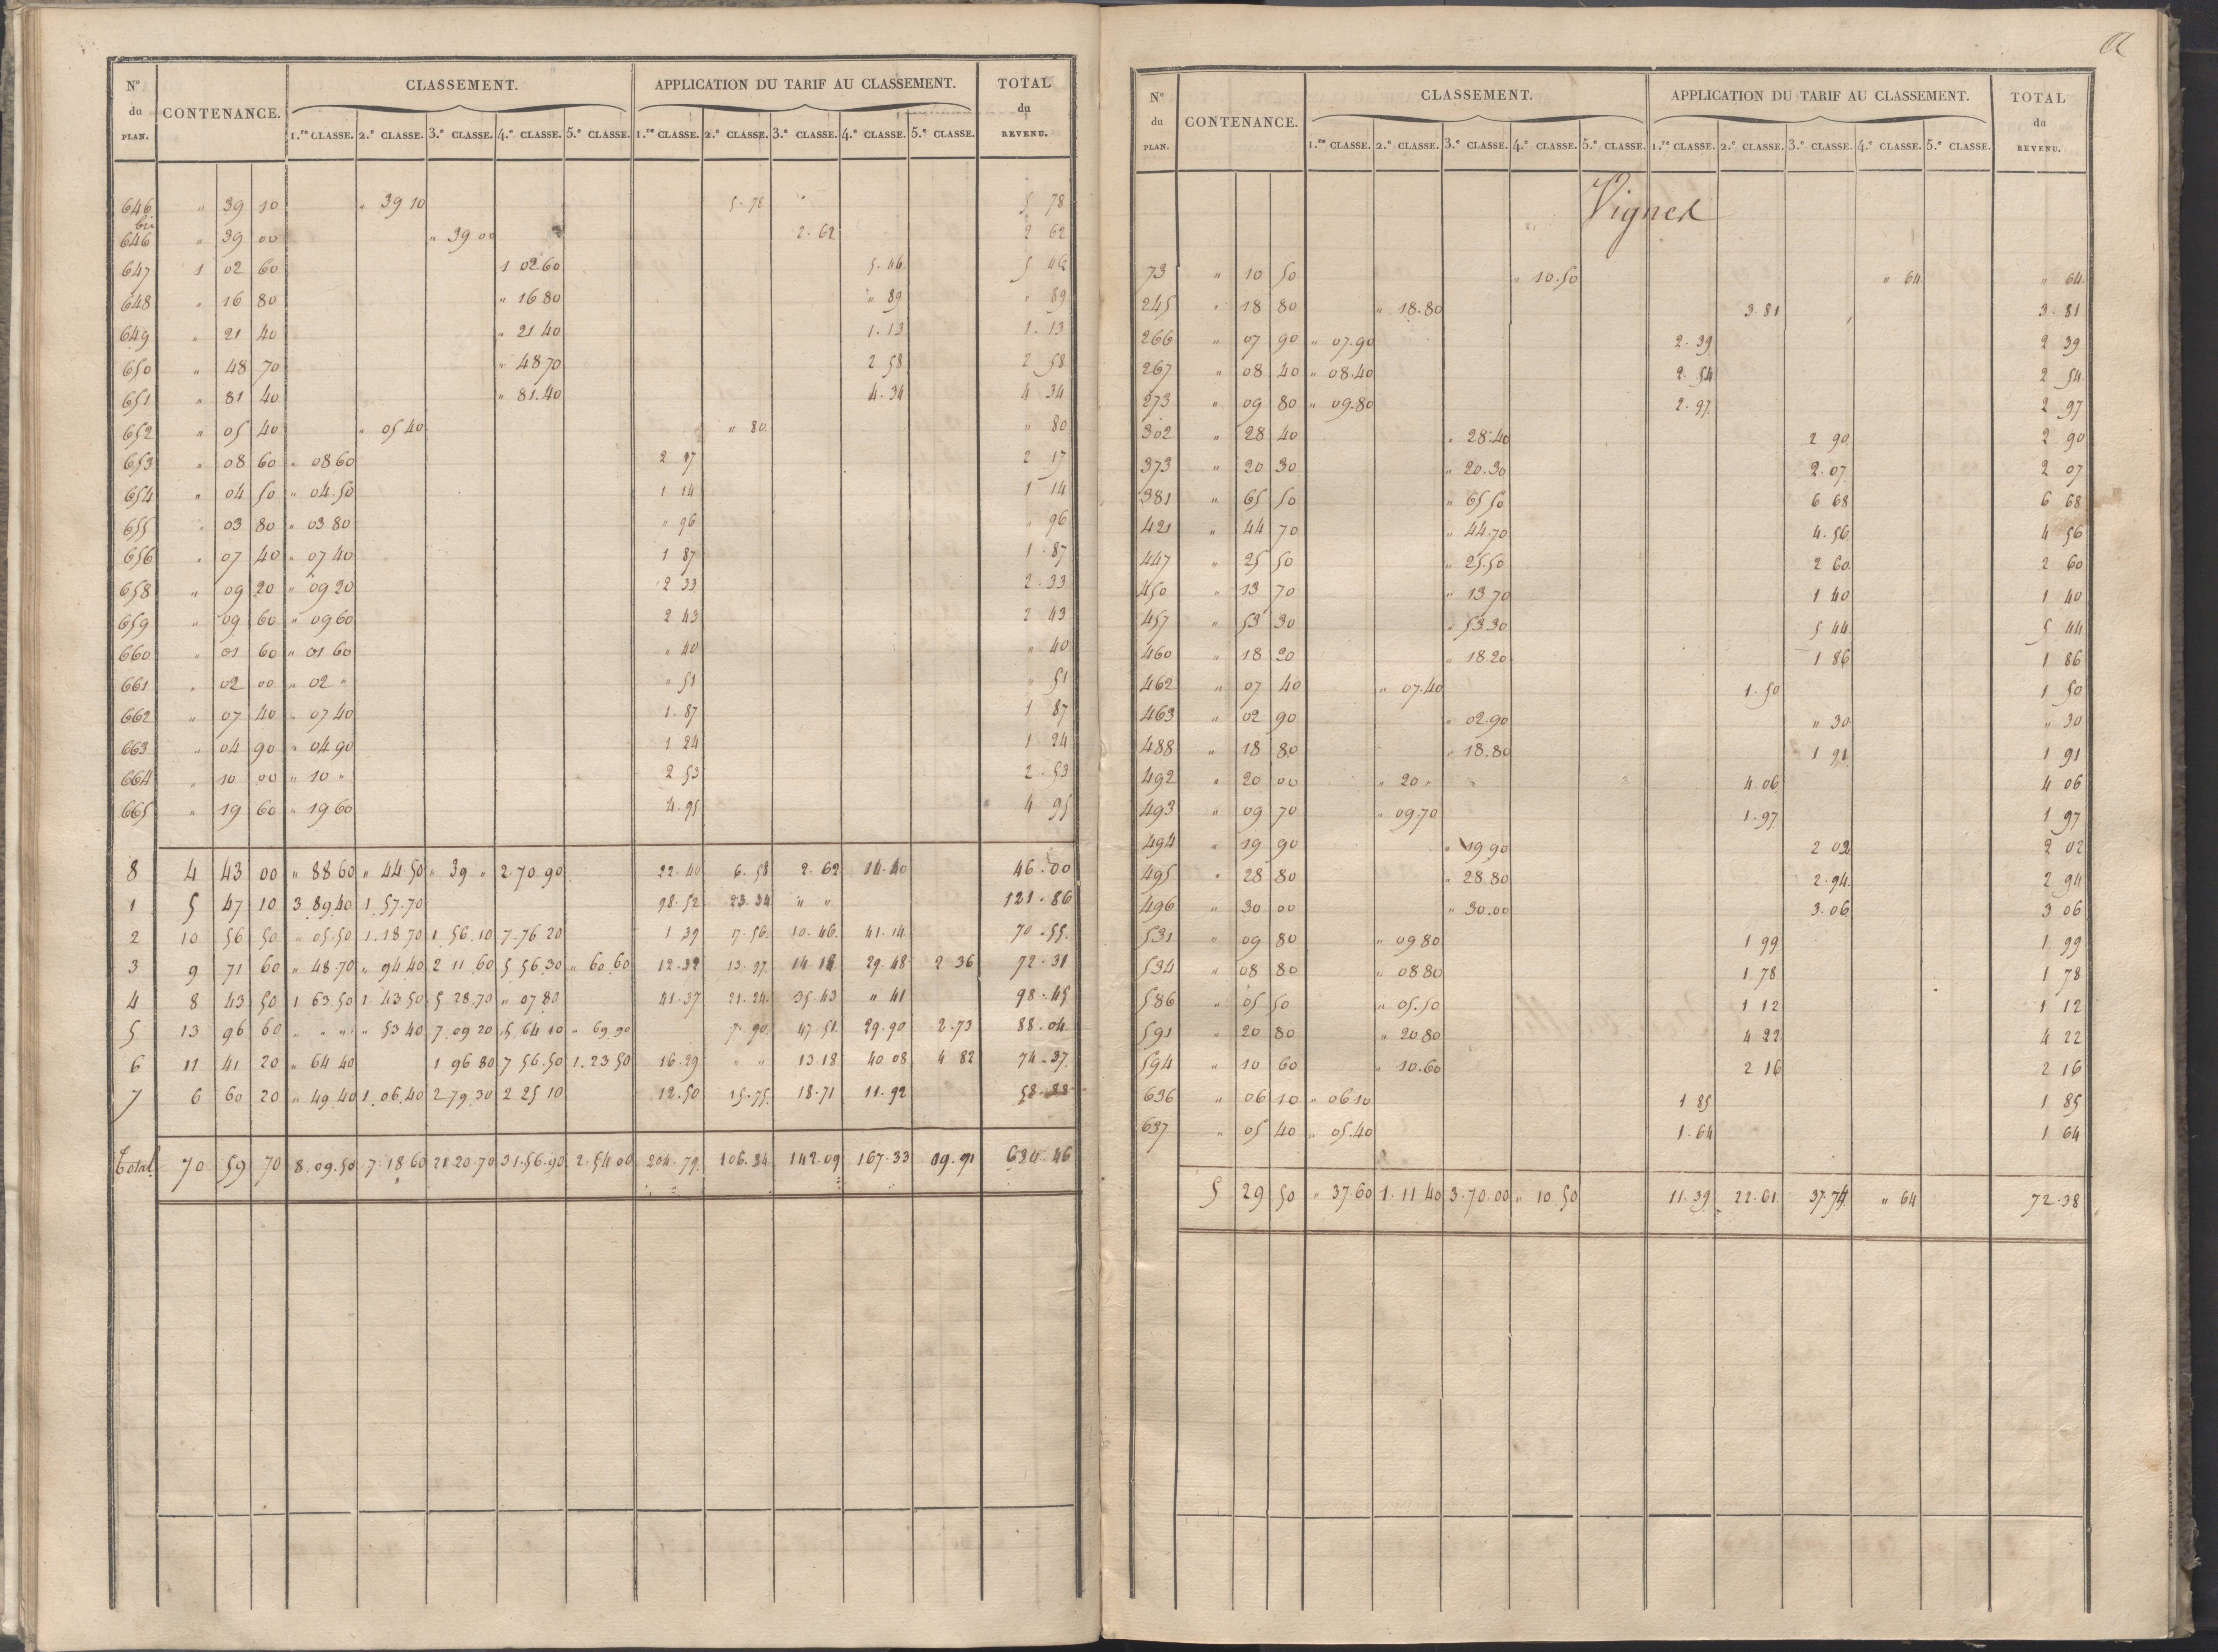 N.º du PLAN. CONTENANCE. CLASSEMENT. APPLICATION DU TARIF AU CLASSEMENT. TOTAL du REVENU.
1.re CLASSE. 2.e CLASSE. 3.e CLASSE. 4.e CLASSE. 5.e CLASSE. 1.re CLASSE. 2.e CLASSE. 3.e CLASSE. 4.e CLASSE. 5.e CLASSE.
646 " 39 10 " 39 10 5. 78 5 78
bis
646 " 39 00 " 39 00 2. 62 2 62
647 1 02 60 1 02 60 5. 46 5 46
648 " 16 80 " 16 80 " 89 " 89
649 " 21 40 " 21 40 1. 13 1. 13
650 " 48 70 " 48 70 2 58 2 58
651 " 81 40 " 81.40 4. 34 4 34
652 " 05 40 " 05 40 " 80 " 80
653 " 08 60 " 08 60 2 17 2 17
654 " 04 50 " 04.50 1 14 1 14
655 " 03 80 " 03 80 " 96 " 96
656 " 07 40 " 07 40 1 87 1. 87
658 " 09 20 " 09 20 2 33 2. 33
659 " 09 60 " 09 60 2 43 2 43
660 " 01 60 " 01 60 " 40 " 40
661 " 02 00 " 02 " " 51 " 51
662 " 07 40 " 07 40 1. 87 1 87
663 " 04 90 " 04 90 1 24 1 24
664 " 10 00 " 10 " 2 53 2. 53
665 " 19 60 " 19 60 4. 95 " 4 95
8 4 43 00 " 88 60 " 44 50 " 39 " 2.70.90 22. 40 6. 58 2. 62 14. 40 46. 00
1 5 47 10 3 89.40 1.57.70 98.52 23.34 " " 121. 86
2 10 56 50 " 05.50 1.18 70 1 56.10 7.76 20 1 39 17.56. 10.46. 41.14 70.55.
3 9 71 60 " 48.70 " 94 40 2 11 60 5 56.30 " 60 60 12.32 13.97. 14.18 29.48 2 36 72.31
4 8 43 50 1 63.50 1 43 50 5 28.70 " 07 80 41.37 21.24. 35.43 " 41 98.45
5 13 96 60 " " " " 53 40 7 09 20 5 64 10 " 69.90 7.90. 47 51 29.90 2.73 88.04
6 11 41 20 " 64 40 1 96 80 7 56.50 1.23 50 16.29 " " 13.18 40 08 4 82 74.37
7 6 60 20 " 49 40 1.06.40 2 79.30 2 25 10 12.50 15.75. 18.71 11.92 58.88
Total 70 59 70 8.09.50 7.18 60 21 20.70 31.56.90 2.54 00 204.79. 106.34 142.09 167.33 09.91
N.º du PLAN. CONTENANCE. CLASSEMENT. APPLICATION DU TARIF AU CLASSEMENT. TOTAL du REVENU.
1.re CLASSE. 2.e CLASSE. 3.e CLASSE. 4.e CLASSE. 5.e CLASSE. 1.re CLASSE. 2.e CLASSE. 3.e CLASSE. 4.e CLASSE. 5.e CLASSE.
Vignes
73 " 10 50 " 10.50 " 64 " 64
245 " 18 80 " 18.80 3.81 3. 81
266 " 07 90 " 07.90 2. 39 2 39
267 " 08 40 " 08.40 2. 54 2 54
273 " 09 80 " 09.80 2. 97. 2 97
302 " 28 40 " 28.40 2 90 2 90
373 " 20 30 " 20.30 2.07. 2 07
381 " 65 50 " 65 50 6 68 6 68
421 " 44 70 " 44.70 4.56 4 56
447 " 25 50 " 25.50 2 60 2 60
450 " 13 70 " 13 70 1 40 1 40
457 " 53 30 " 53.30 5 44 5 44
460 " 18 20 " 18 20 1 86 1 86
462 " 07 40 " 07.40 1. 50 1 50
463 " 02 90 " 02.90 " 30 " 30
488 " 18 80 " 18.80 1 91 1 91
492 " 20 00 " 20 " 4.06 4 06
493 " 09 70 " 09.70 1.97. 1 97
494 " 19 90 " 19 90 2 02 2 02
495 " 28 80 " 28 80 2.94. 2 94
496 " 30 00 " 30.00 3.06 3 06
531 " 09 80 " 09 80 1 99 1 99
534 " 08 80 " 08 80 1 78 1 78
586 " 05 50 " 05.50 1 12 1 12
591 " 20 80 " 20 80 4 22 4 22
594 " 10 60 " 10.60 2 16 2 16
636 " 06 10 " 06 10 1 85 1 85
637 " 05 40 " 05.40 1.64 1 64
5 29 50 " 37.60 1.11 40 3.70.00 " 10 50 11.39 22.61 37.74 " 64 72.38